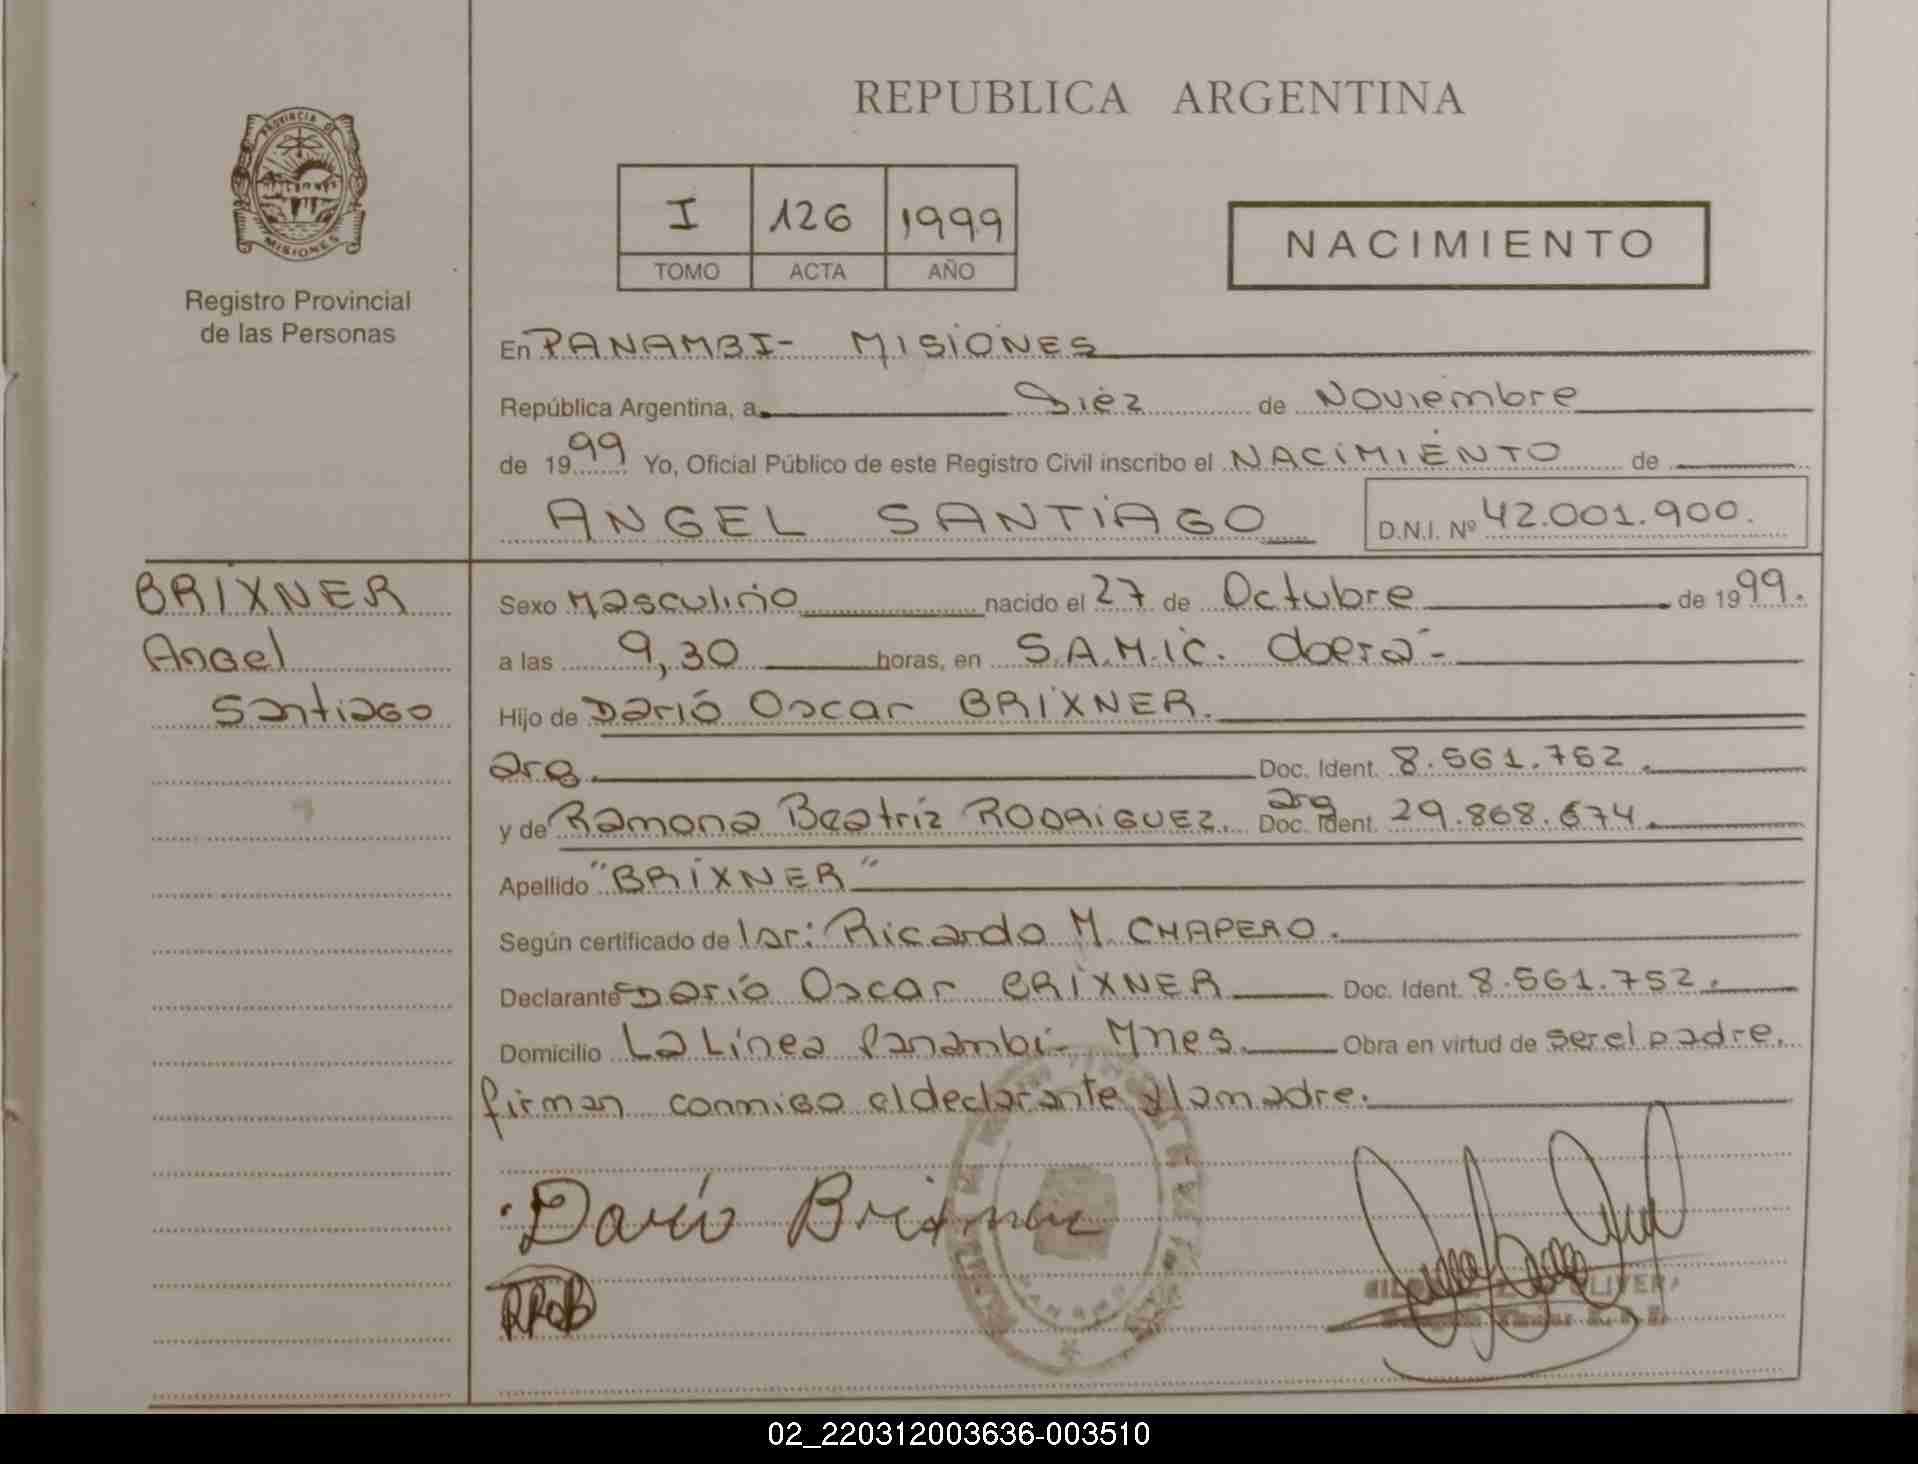 PROVINCIA DE
MISIONES
Registro Provincial
de las Personas
REPUBLICA ARGENTINA
I 126 1999
TOMO ACTA AÑO
NACIMIENTO
En PANAMBI- MISIONES
República Argentina, a Diez de Noviembre
de 1999 Yo, Oficial Público de este Registro Civil inscribo el NACIMIENTO de
ANGEL SANTIAGO D.N.I. Nº 42.001.900.
BRIXNER
Angel
Santiago
Sexo Masculino nacido el 27 de Octubre de 1999.
a las 9,30 horas, en S.A.M.I.C. Oberá-
Hijo de Darió Oscar BRIXNER.
arg. Doc. Ident. 8.561.752.
y de Ramona Beatríz RODRIGUEZ. arg Doc. Ident. 29.868.674.
Apellido "BRIXNER"
Según certificado de Ricardo M. CHAPERO.
Declarante Darió Oscar BRIXNER Doc. Ident. 8.561.752.
Domicilio La Línea Panambi- Mnes. Obra en virtud de ser el padre.
firman conmigo el declarante y la madre.
Darío Brixner
RROB
02_220312003636-003510